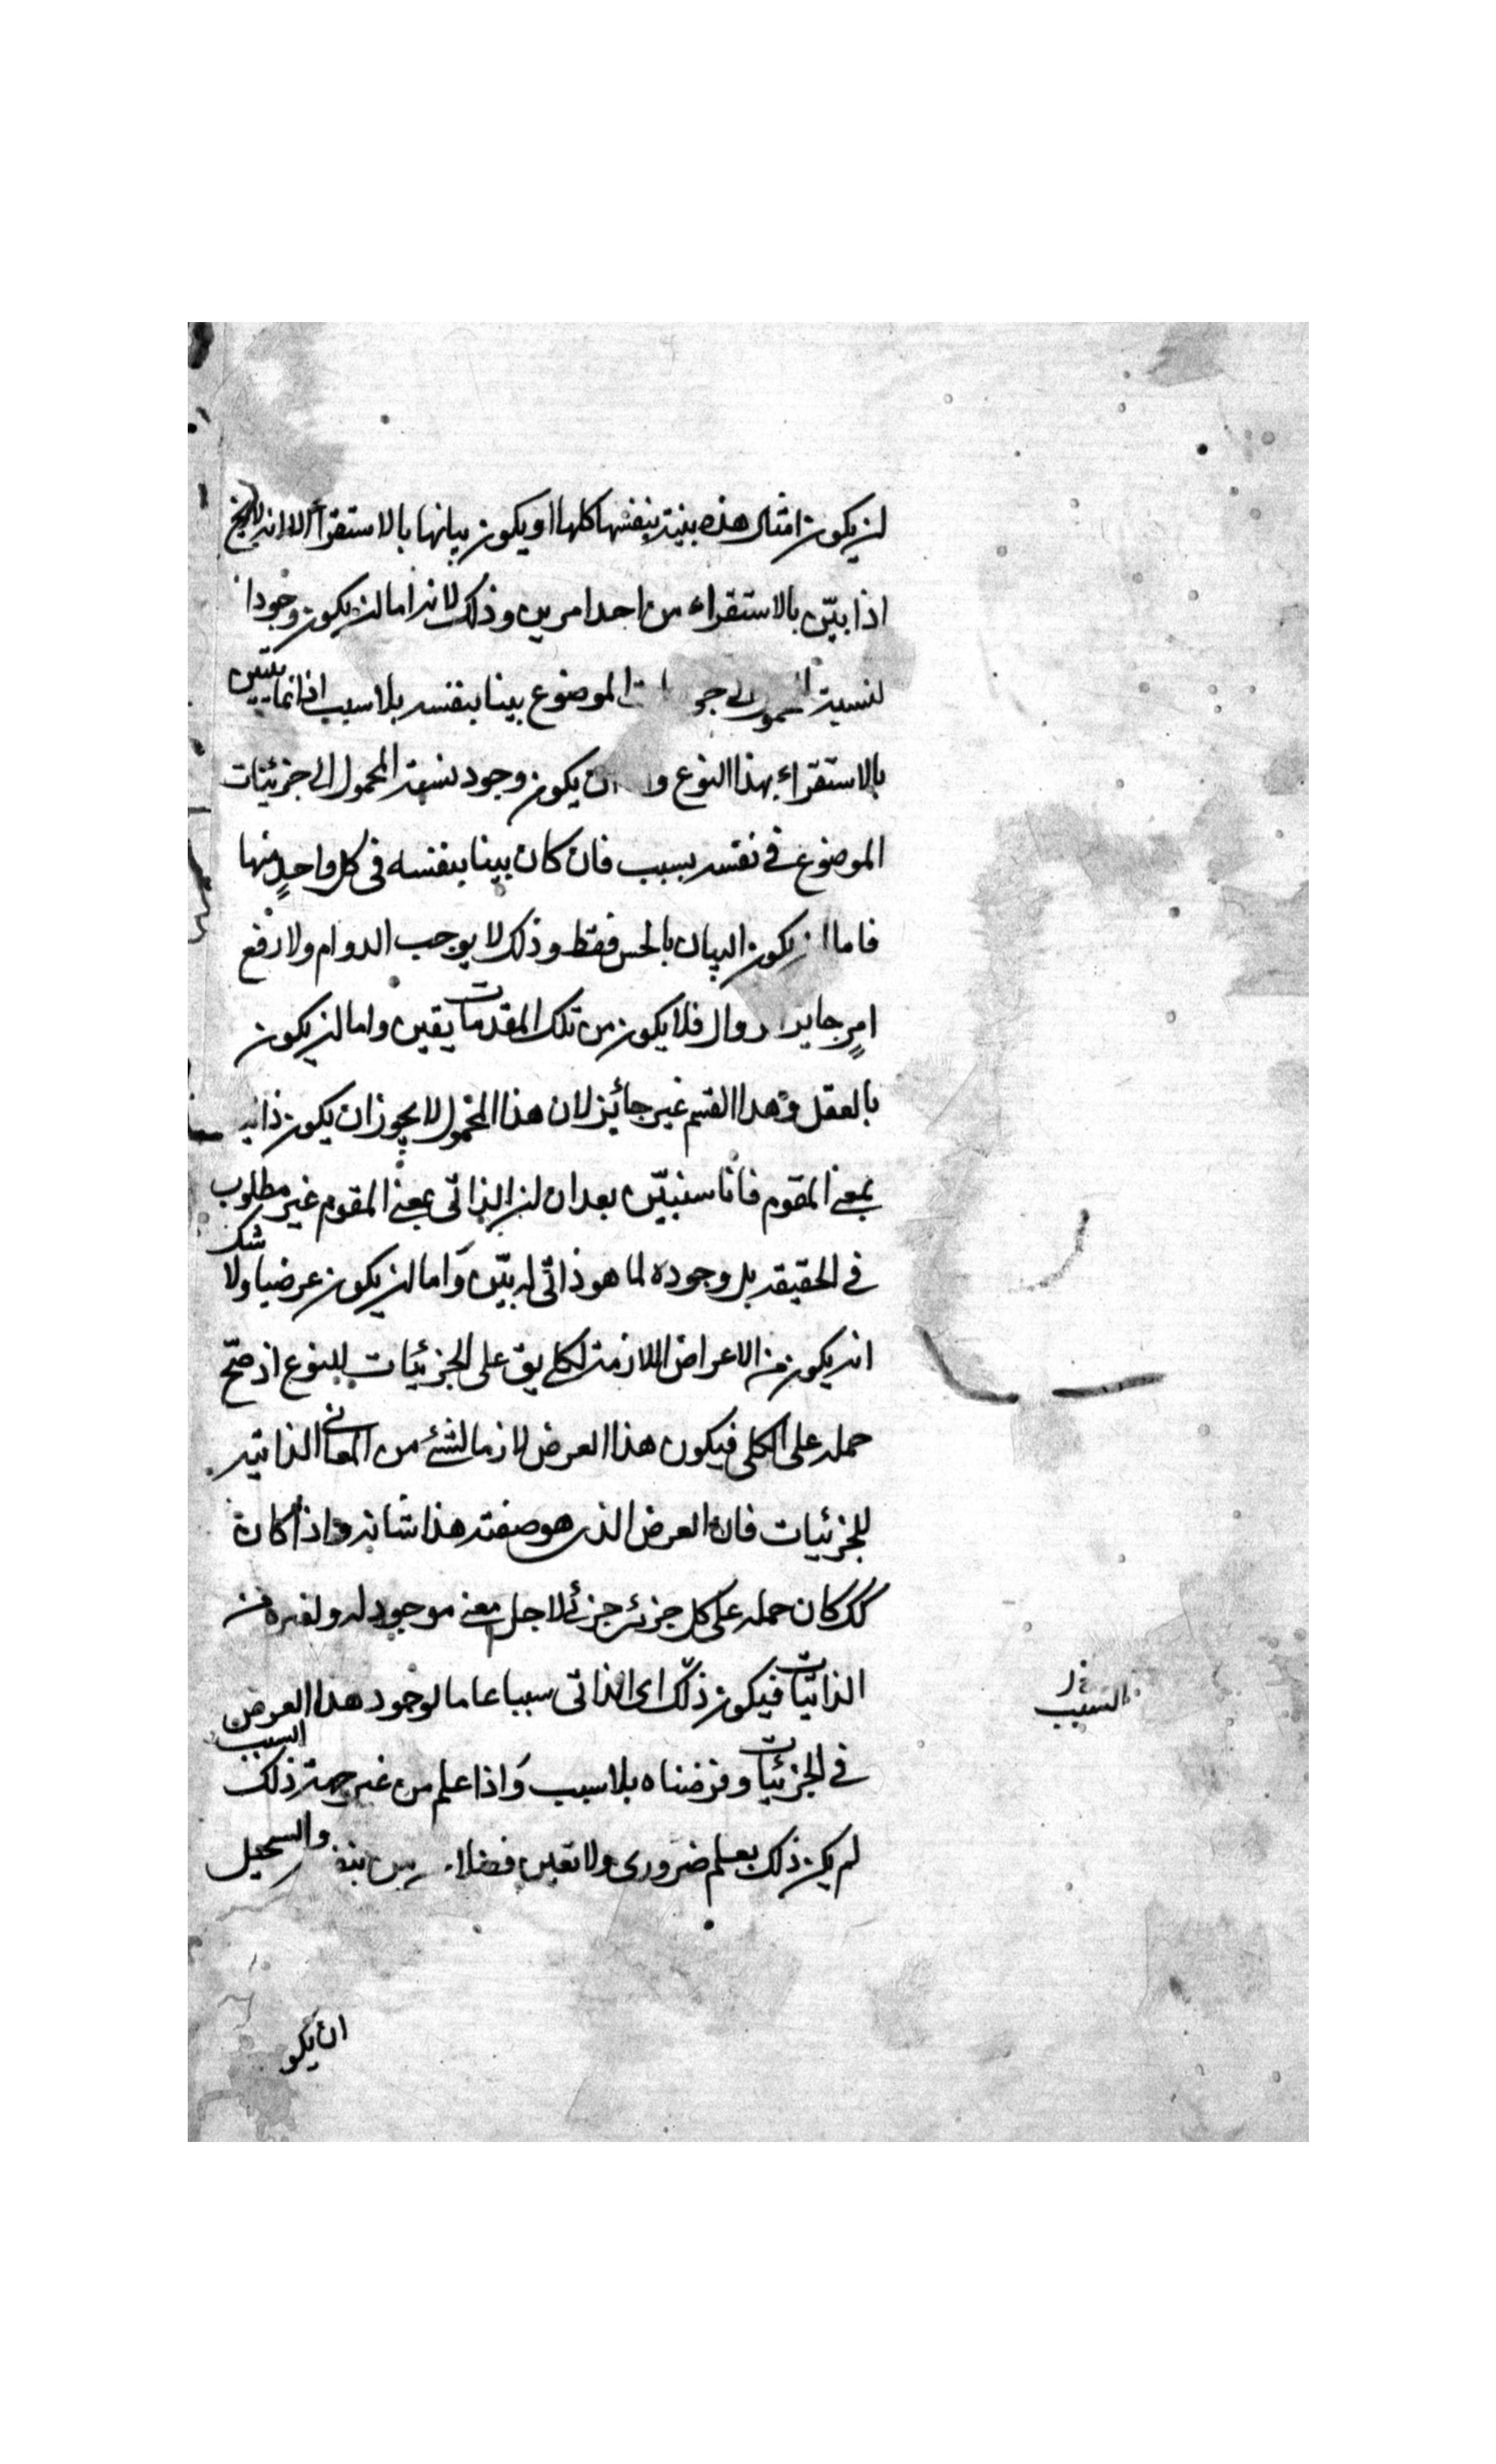 ان يكون امثال هذه بينة بنفسها كلها او يكون بيانها بالاستقرأ الا انه لا يخ
اذا بيّن بالاستقراء من احد امرين وذلك لانه اما ان يكون وجود
لنسبة جو الموضوع بينا بنفسه بلا سبب اذ انما يتبين
بالاستقراء بهذا النوع ان يكون وجود نسبة المحمول الى جزئيات
الموضوع فى نفسه بسبب فان كان بينا بنفسه فى كل واحدٍ منها
فاما ان يكون البيان بالحس فقط وذلك لا يوجب الدوام ولا رفع
امرٍ جايز فلا يكون من تلك المقدمات يقين واما ان يكون
بالعقل وهذا القسم غير جائيز لان هذا المحمول لا يجوز ان يكون ذاتيا
بمعنى المقوم فانا سنبيّن بعد ان ان الذاتى بمعنى المقوم غير مطلوب
فى الحقيقه بل وجوده لما هو ذاتى له بيّن وَاما ان يكون عرضيا ولا شك
انه يكون من الاعراض اللازمة لكلى يق على الجزئيات للنوع اذ صحّ
حمله على الكلى فيكون هذا العرض لازما لشئ من المعانى الذاتية
للجزئيات فان العرض الذى هو صفته هذا شانه واذا كان
كك كان حمله على كل جزئى جزئى لاجل معنى موجود له ولغيره من
الذاتيّات فيكون ذلك اى الذاتى سببا عاما لوجود هذا العرض
فى الجزئيات وفرضناه بلا سبب وَاذا علم من غير جهة ذلك السبب
لم يكن ذلك بعلم ضرورى ولا يقين فضلا بين والمستحيل
ان يكو
السبب